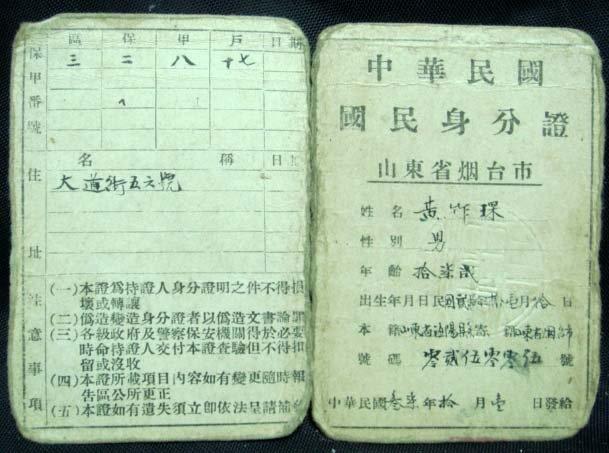 區 保 甲 戶 日期
保甲番號
三 二 八 十七
名 稱 日期
住址
大道街五六號
注意事項
(一)本證為持證人身分證明之件不得損
壞或轉讓
(二)偽造變造身分證者以偽造文書論罪
(三)各級政府及警察保安機關得於必要
時命持證人交付本證查驗但不得扣
留或沒收
(四)本證所載項目內容如有變更隨時報
告區公所更正
(五)本證如有遺失須立即依法呈請補
中華民國
國民身分證
山東省烟台市
姓名 黃作琛
性別 男
年齡 拾柒歲
出生年月日民國 年 月拾日
本籍山東省 縣
號碼 零貳伍零零伍 號
中華民國叁柒年拾月壹日發給